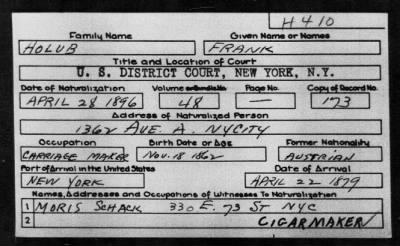 H 410
Family Name Given Name or Names
HOLUB FRANK
Title and Location of Court
U. S. DISTRICT COURT, NEW YORK, N.Y.
Date of Naturalization Volume or Bundle No. Page No. Copy of Record No.
APRIL 28 1896 48 — 173
Address of Naturalized Person
1362 AVE. A. NYCITY
Occupation Birth Date or Age Former Nationality
CARRIAGE MAKER NOV. 18 1862 AUSTRIAN
Port of Arrival in the United States Date of Arrival
NEW YORK APRIL 22 1879
Names, Addresses and Occupations of Witnesses To Naturalization
1 MORIS SCHACK 330 E. 73 ST NYC
2 CIGARMAKER